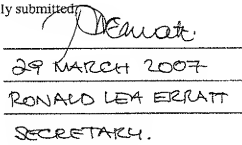 ly submitted,
29 MARCH 2007
RONALD LEA ERRATT
SECRETARY.